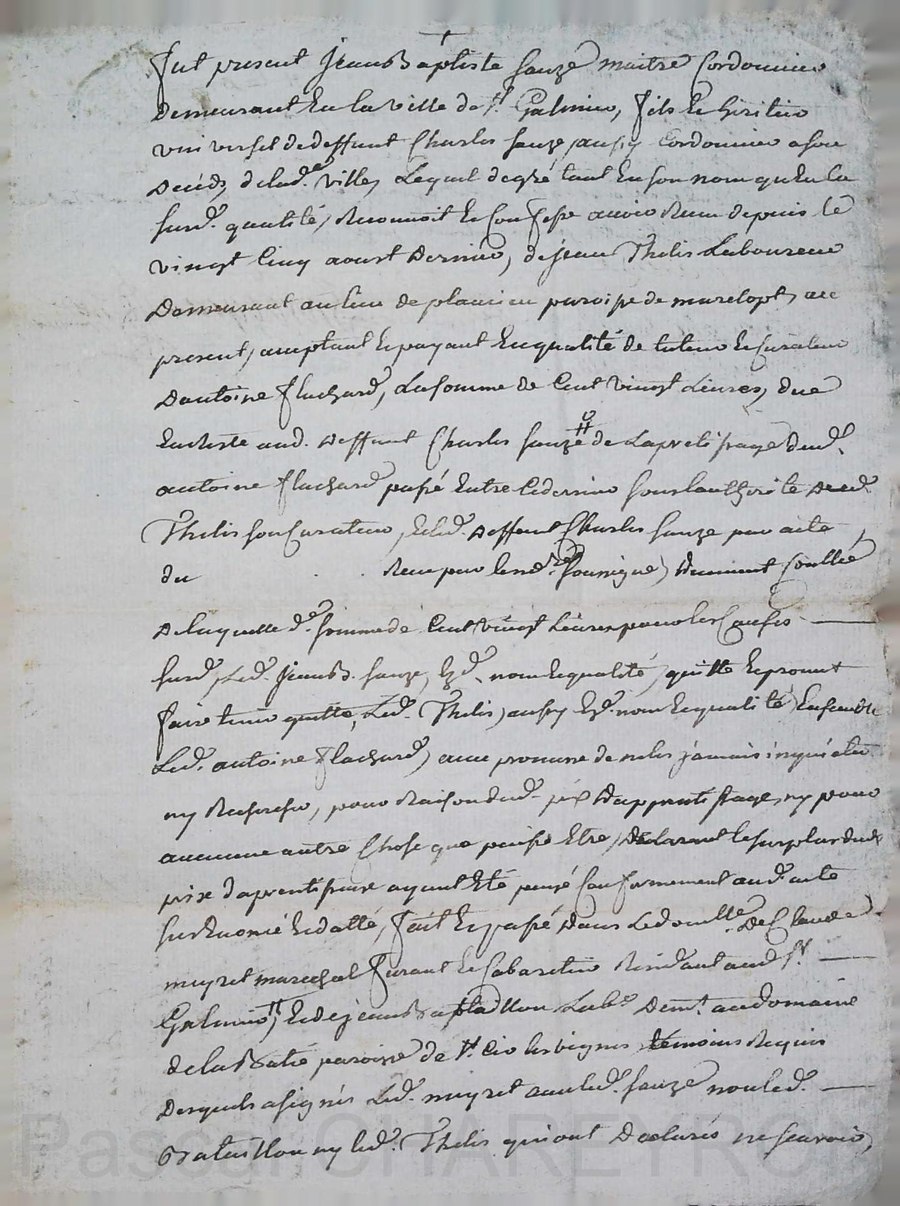 +
fut present Jean Baptiste Sauze maitre Cordonnier
demeurant en la ville de St Galmier, fils et heritier
universel de deffunt Charles Sauze aussy Cordonnier a son
deceds, de lad.e ville, Lequel de gré tant en son nom qu'en la
susd. qualité, Reconnoit et Confesse avoir Receu depuis le
vingt Cinq aoust dernier, de jean Thelis Laboureur
demeurant au lieu de paroisse de icy
present, acceptant et payant en qualité de tuteur et Curateur
d'antoine flachard, La somme de Cent vingt Livres, due
En Reste aud. deffunt Charles Sauze de Laprentissage dud.
antoine flachard passé Entre ce dernier sous lauthorité dud.
Thelis son Curateur, et led. deffunt Charles Sauze par acte
du Receu par le no.re soussigné, duement Conllé
de laquelle d.e somme de Cent vingt Livres pour les Causes
susd. Led. Jean B. Sauze, esd. nom et qualité, quitte et promet
faire tenir quitte, Led. Thelis, aussy esd. nom et qualité, Ensemble
Led. antoine flachard, avec promesse de ne les jamais inquieter
ny Rechercher, pour Raison dud. prix d'apprentissage, ny pour
aucune autre Chose que puisse Etre, declarant le surplus dud.
prix d'aprentissage ayant Eté payé Conformement aud. acte
sus Enoncé et datté, fait et passé dans Le domicille de Claude
meyret marechal ferant et Cabaretier Residant aud. St
Galmier, et de jean Bataillon Lab.r dem.t au domaine
de la paroisse de St les vignes témoins Requis
desquels a signés Led. meyret avec led. Sauze non led.
Bataillon ny led. Thelis qui ont declarés ne sçavoir,
Pascal CHAREYRON